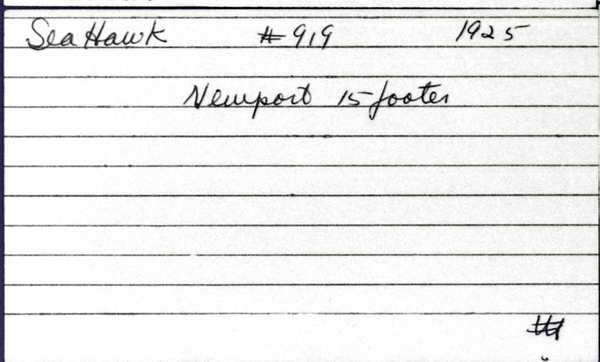 Sea Hawk #919 1925
Newport 15 footer